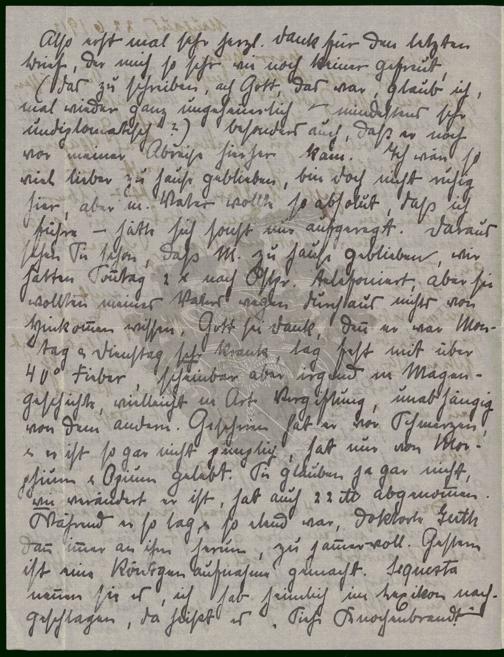 Also erst mal sehr herzl. Dank für den letzten
Brief, der mich so sehr wie noch keiner gefreut,
(das zu schreiben, ach Gott, das war, glaub ich,
mal wieder ganz ungeheuerlich – mindestens sehr
undiplomatisch?) besonders auch, daß er noch
vor meiner Abreise hierher kam. Ich wär so
viel lieber zu Hause geblieben, bin doch nicht ruhig
hier, aber m. Vater wollte so absolut, daß ich
führe – hätte sich sonst nur aufgeregt. Daraus
sehen Sie schon, daß M. zu Hause geblieben, wir
hatten Sonntag 2 x nach telefoniert, aber sie
wollten meines Vaters wegen durchaus nichts von
Hinkommen wissen, Gott sei Dank, denn er war Mon-
tag & Dienstag sehr krank, lag fest mit über
40° Fieber, scheinbar aber irgend ne Magen-
geschichte, vielleicht ne Art Vergiftung, unabhängig
von dem andern. Geschrieen hat er vor Schmerzen,
& er ist so gar nicht pimplig, hat nur von Mor-
phium & Opium gelebt. Sie glauben ja gar nicht,
wie verändert er ist, hat auch 22 ℔ abgenommen.
Während er so lag & so elend war, dokterte
dann immer an ihm herum, zu jammervoll. Gestern
ist eine Röntgenaufnahme gemacht. Sequesta
nennen sie es, ich hab heimlich im Lexikon nach-
geschlagen, da heißt es "